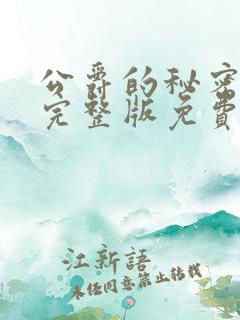 公爵的秘密
完整版免费
江新語
未任同意禁止转载